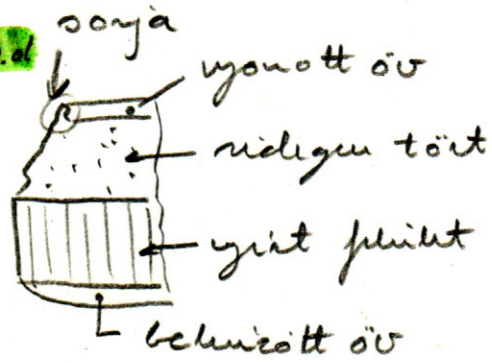 .ol
sorja
nyomott öv
ridegen tört
nyírt felület
behúzott öv